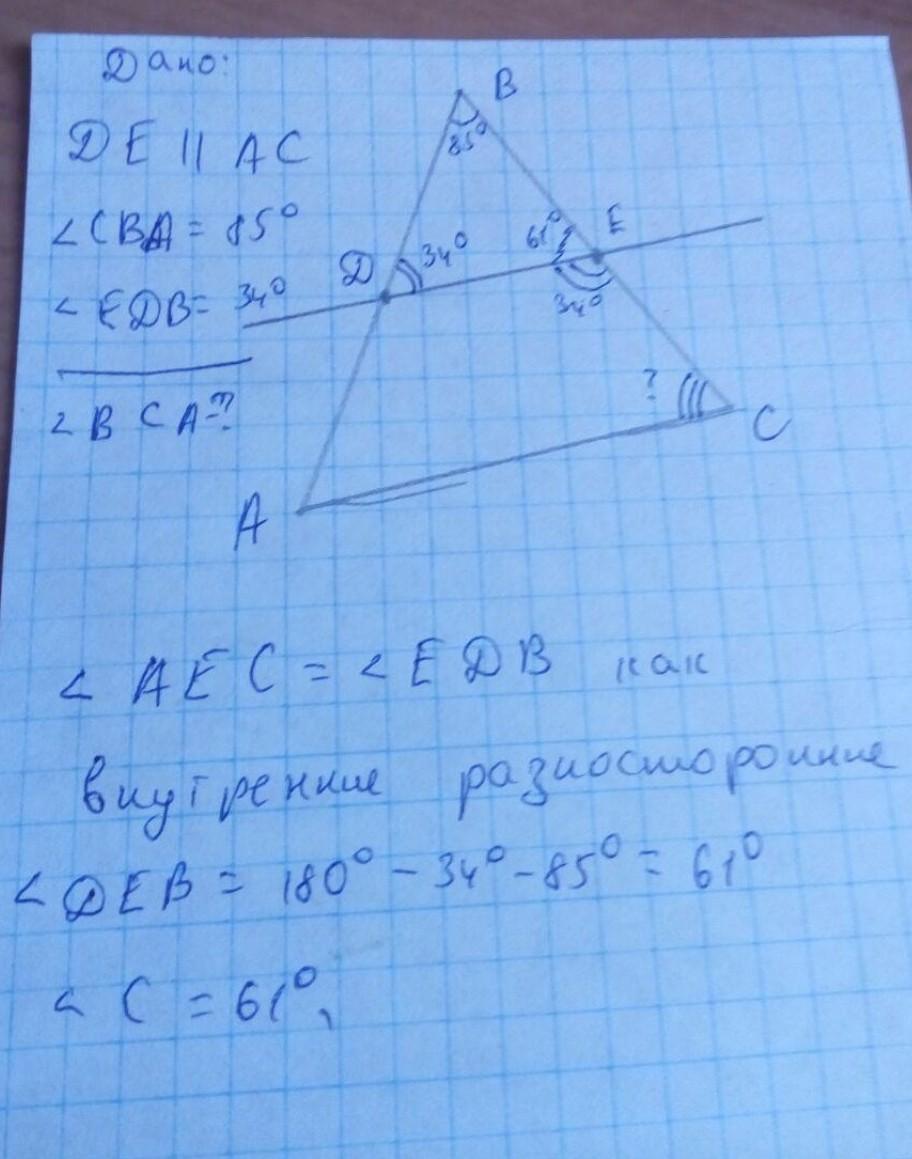 Дано:
DE || AC
<CBA = 85°
<EDB = 34°
<BCA-?
B
85°
D
34°
61°
E
34°
?
C
A
<AEC = <EDB как
внутренние разносторонние
<DEB = 180° - 34° - 85° = 61°
<C = 61°,